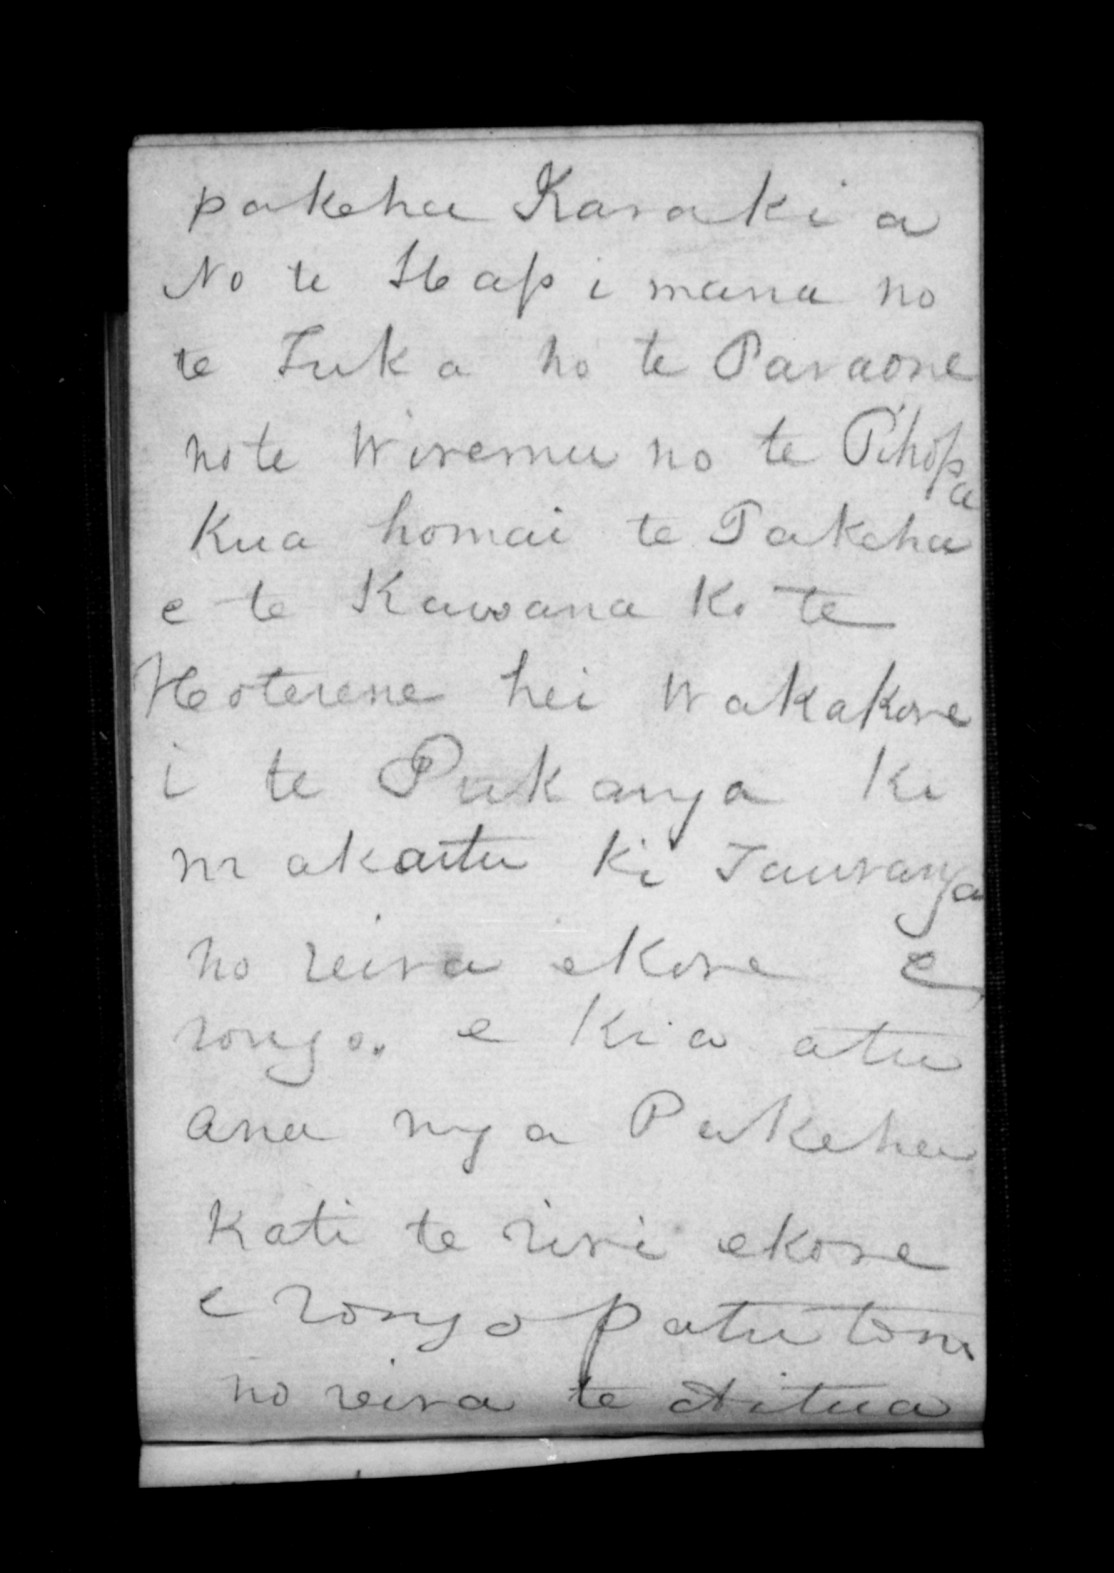 pakeha Karakia
No te Hapimana no
te Tuka no te Paraone
note Wiremu no te Pihopa
Kua homai te Pakeha
e te Kawana Ko te
Hoterene hei Wakakore
i te Pukanga ki
makaitu ki Tauranga
no reira ekore e
rongo. e Kia atu
ana nga Pakeha
Kati te riri ekore
e rongo patu tonu
no reira te Aitua